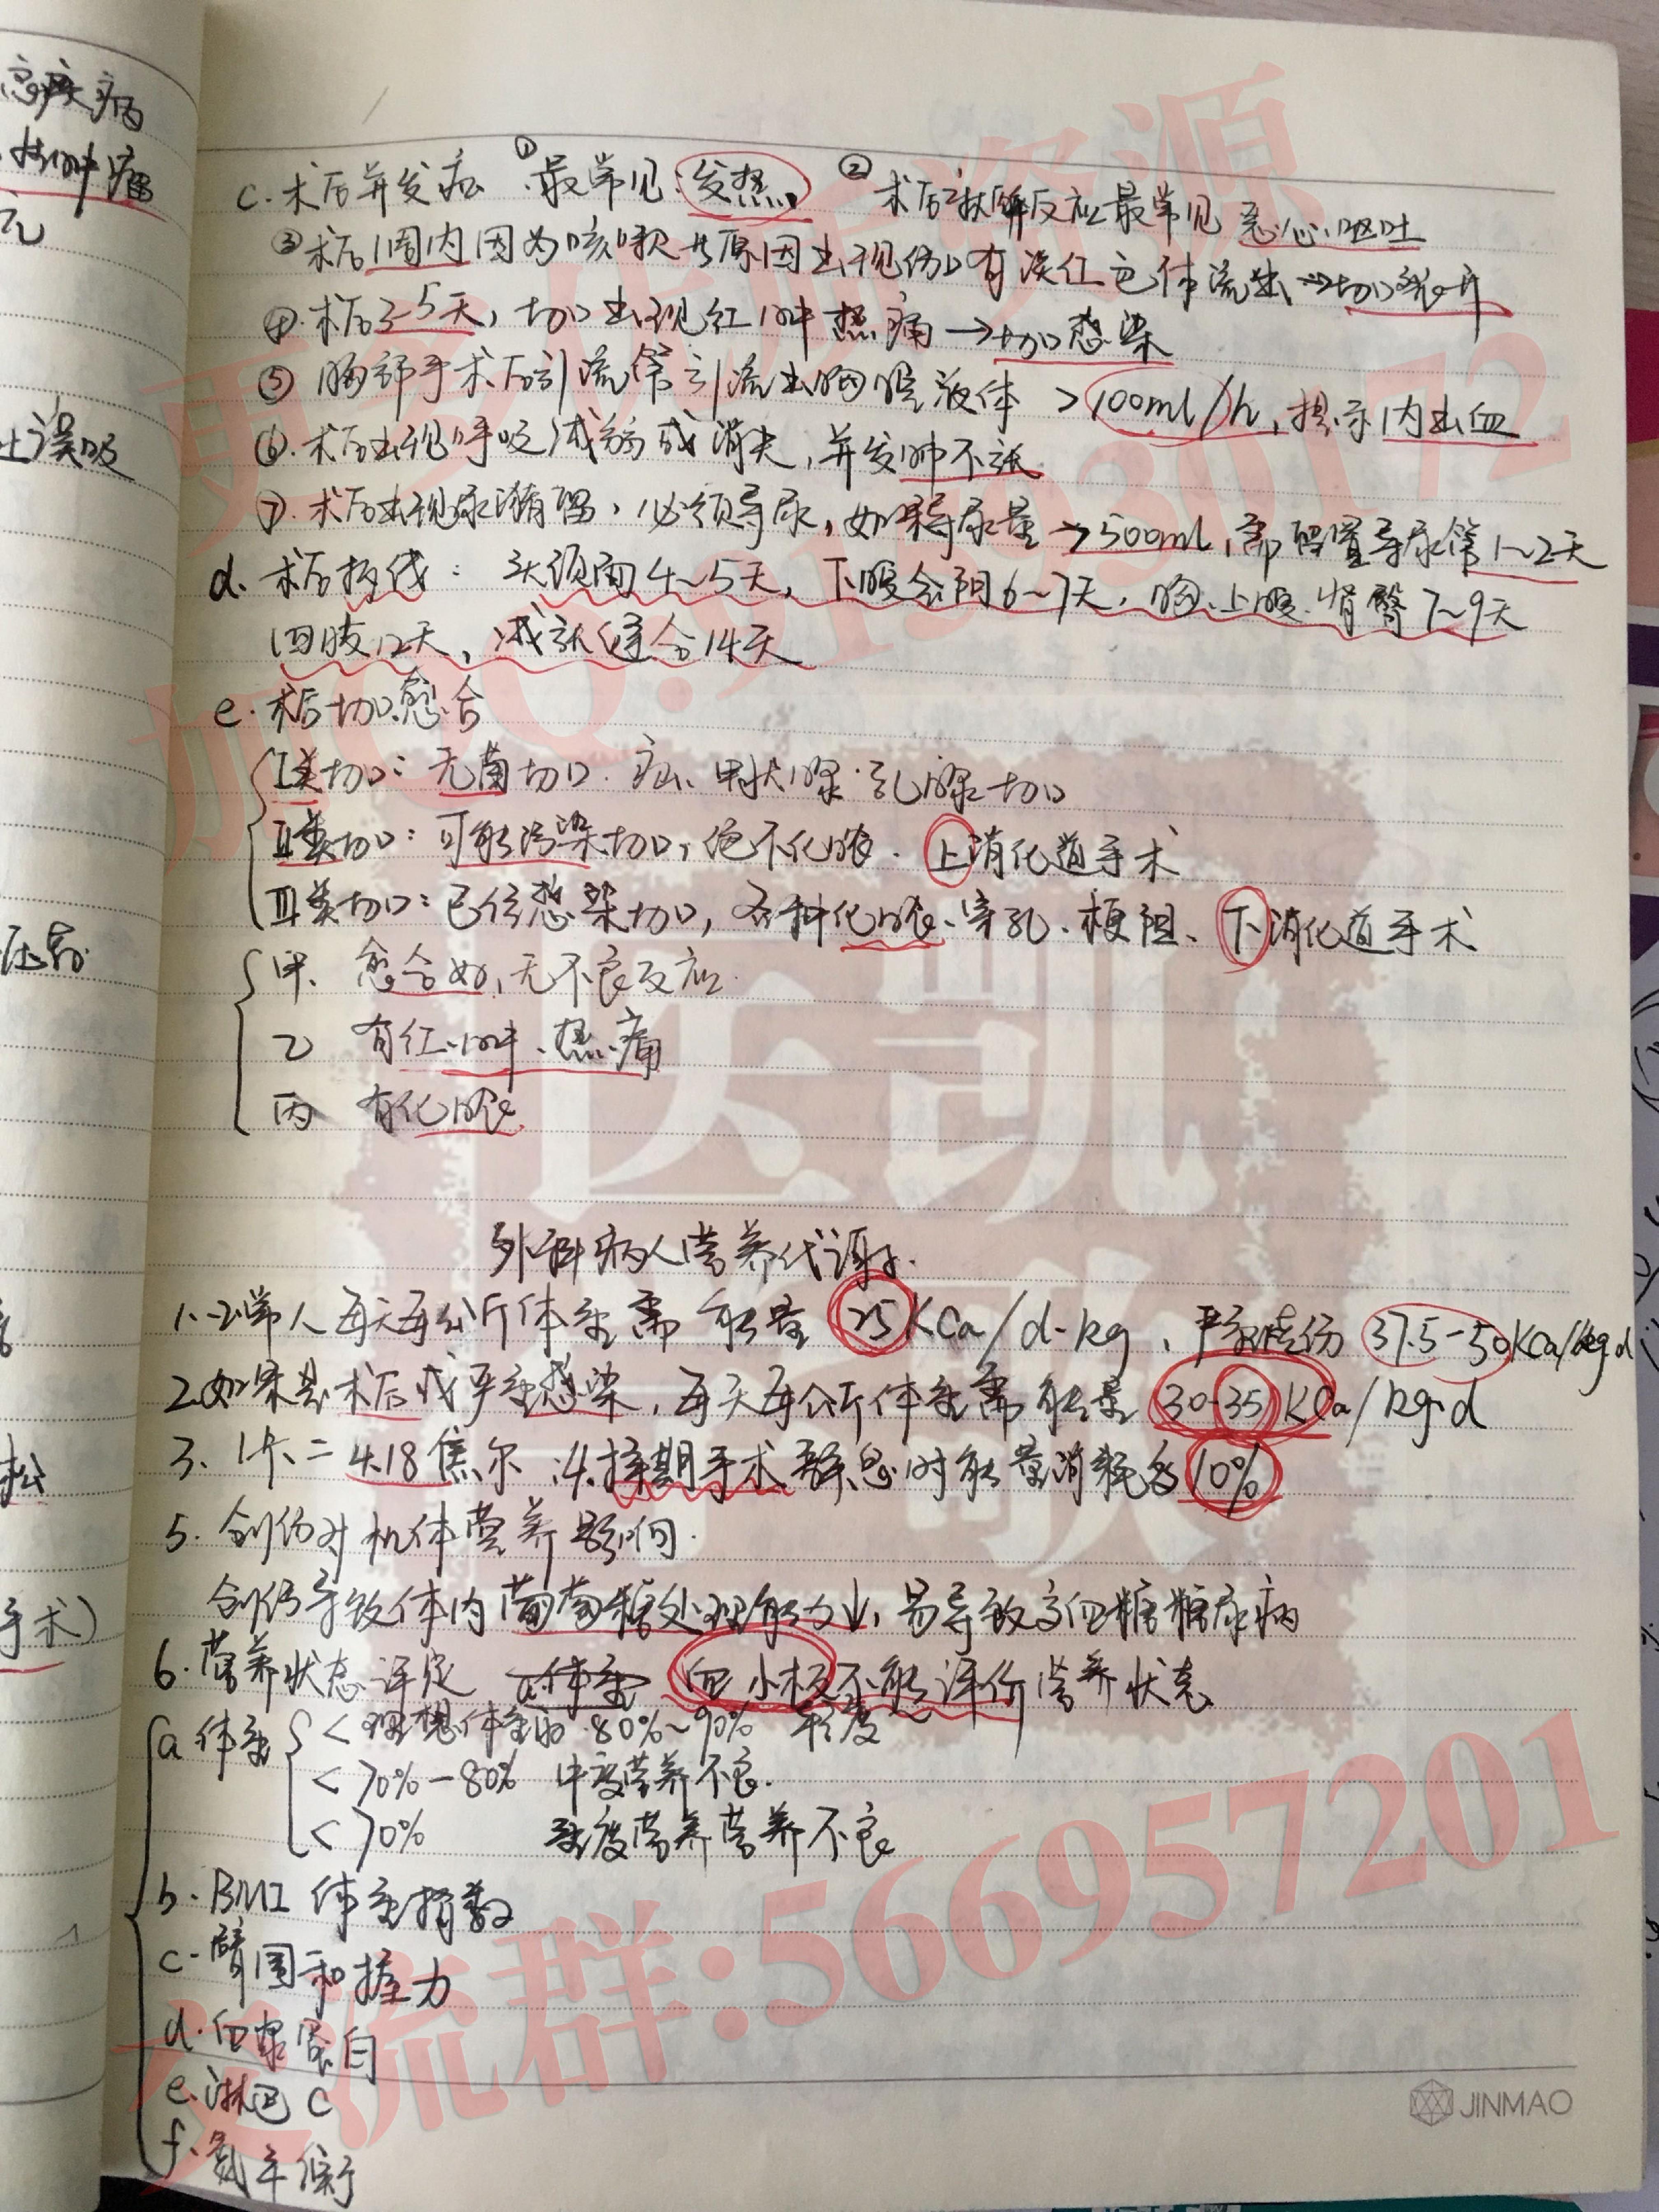 急疾病
肿瘤
止误吸
压高
松
手术)
c.术后并发症 ①最常见:发热 ②术后状解反应最常见恶心.呕吐
③术后1周内因为咳嗽等原因出现伤口有淡红色体流出→切口裂开
④.术后3-5天,切口出现红肿热痛→切口感染
⑤ 胸部手术后引流管引流出胸腔液体 >100ml/h,提示内出血
⑥.术后出现呼吸减弱或消失,并发肺不张
⑦.术后出现尿潴留,必须导尿,如果导尿量→>500ml,需留置导尿管1~2天
d. 术后拆线: 头颈面4~5天,下腹会阴6~7天,胸.上腹.背臀7~9天
四肢12天,减张缝合14天
e.术后切口愈合
I类切口:无菌切口.疝、甲状腺.乳腺切口
II类切口:可能污染切口,绝不化脓.上消化道手术
III类切口:已经感染切口,各种化脓、穿孔、梗阻、下消化道手术
甲. 愈合好,无不良反应.
乙 有红.肿、热.痛
丙 有化脓
外科病人营养代谢.
1.正常人每天每公斤体重需能量25KCa/d-kg,严重烧伤37.5-50KCa/kg.d
2.如果是术后或严重感染,每天每公斤体重需能量30-35KCa/kg.d
3、1卡=4.18焦尔 .4.择期手术静息时能量消耗多10%
5.创伤对机体营养影响.
创伤导致体内葡萄糖处理能力↓,易导致高血糖糖尿病
6.营养状态评定 a.体重 血小板不能评价营养状态
a体重 <理想体重的80%~90% 轻度
<70%-80% 中度营养不良.
<70% 重度营养营养不良
b.BMI 体重指数
c-臂围和握力
d.血浆蛋白
e.淋巴C
f.氮平衡
JINMAO
更多优质资源
加QQ:919930172
医凯
交流群:566957201